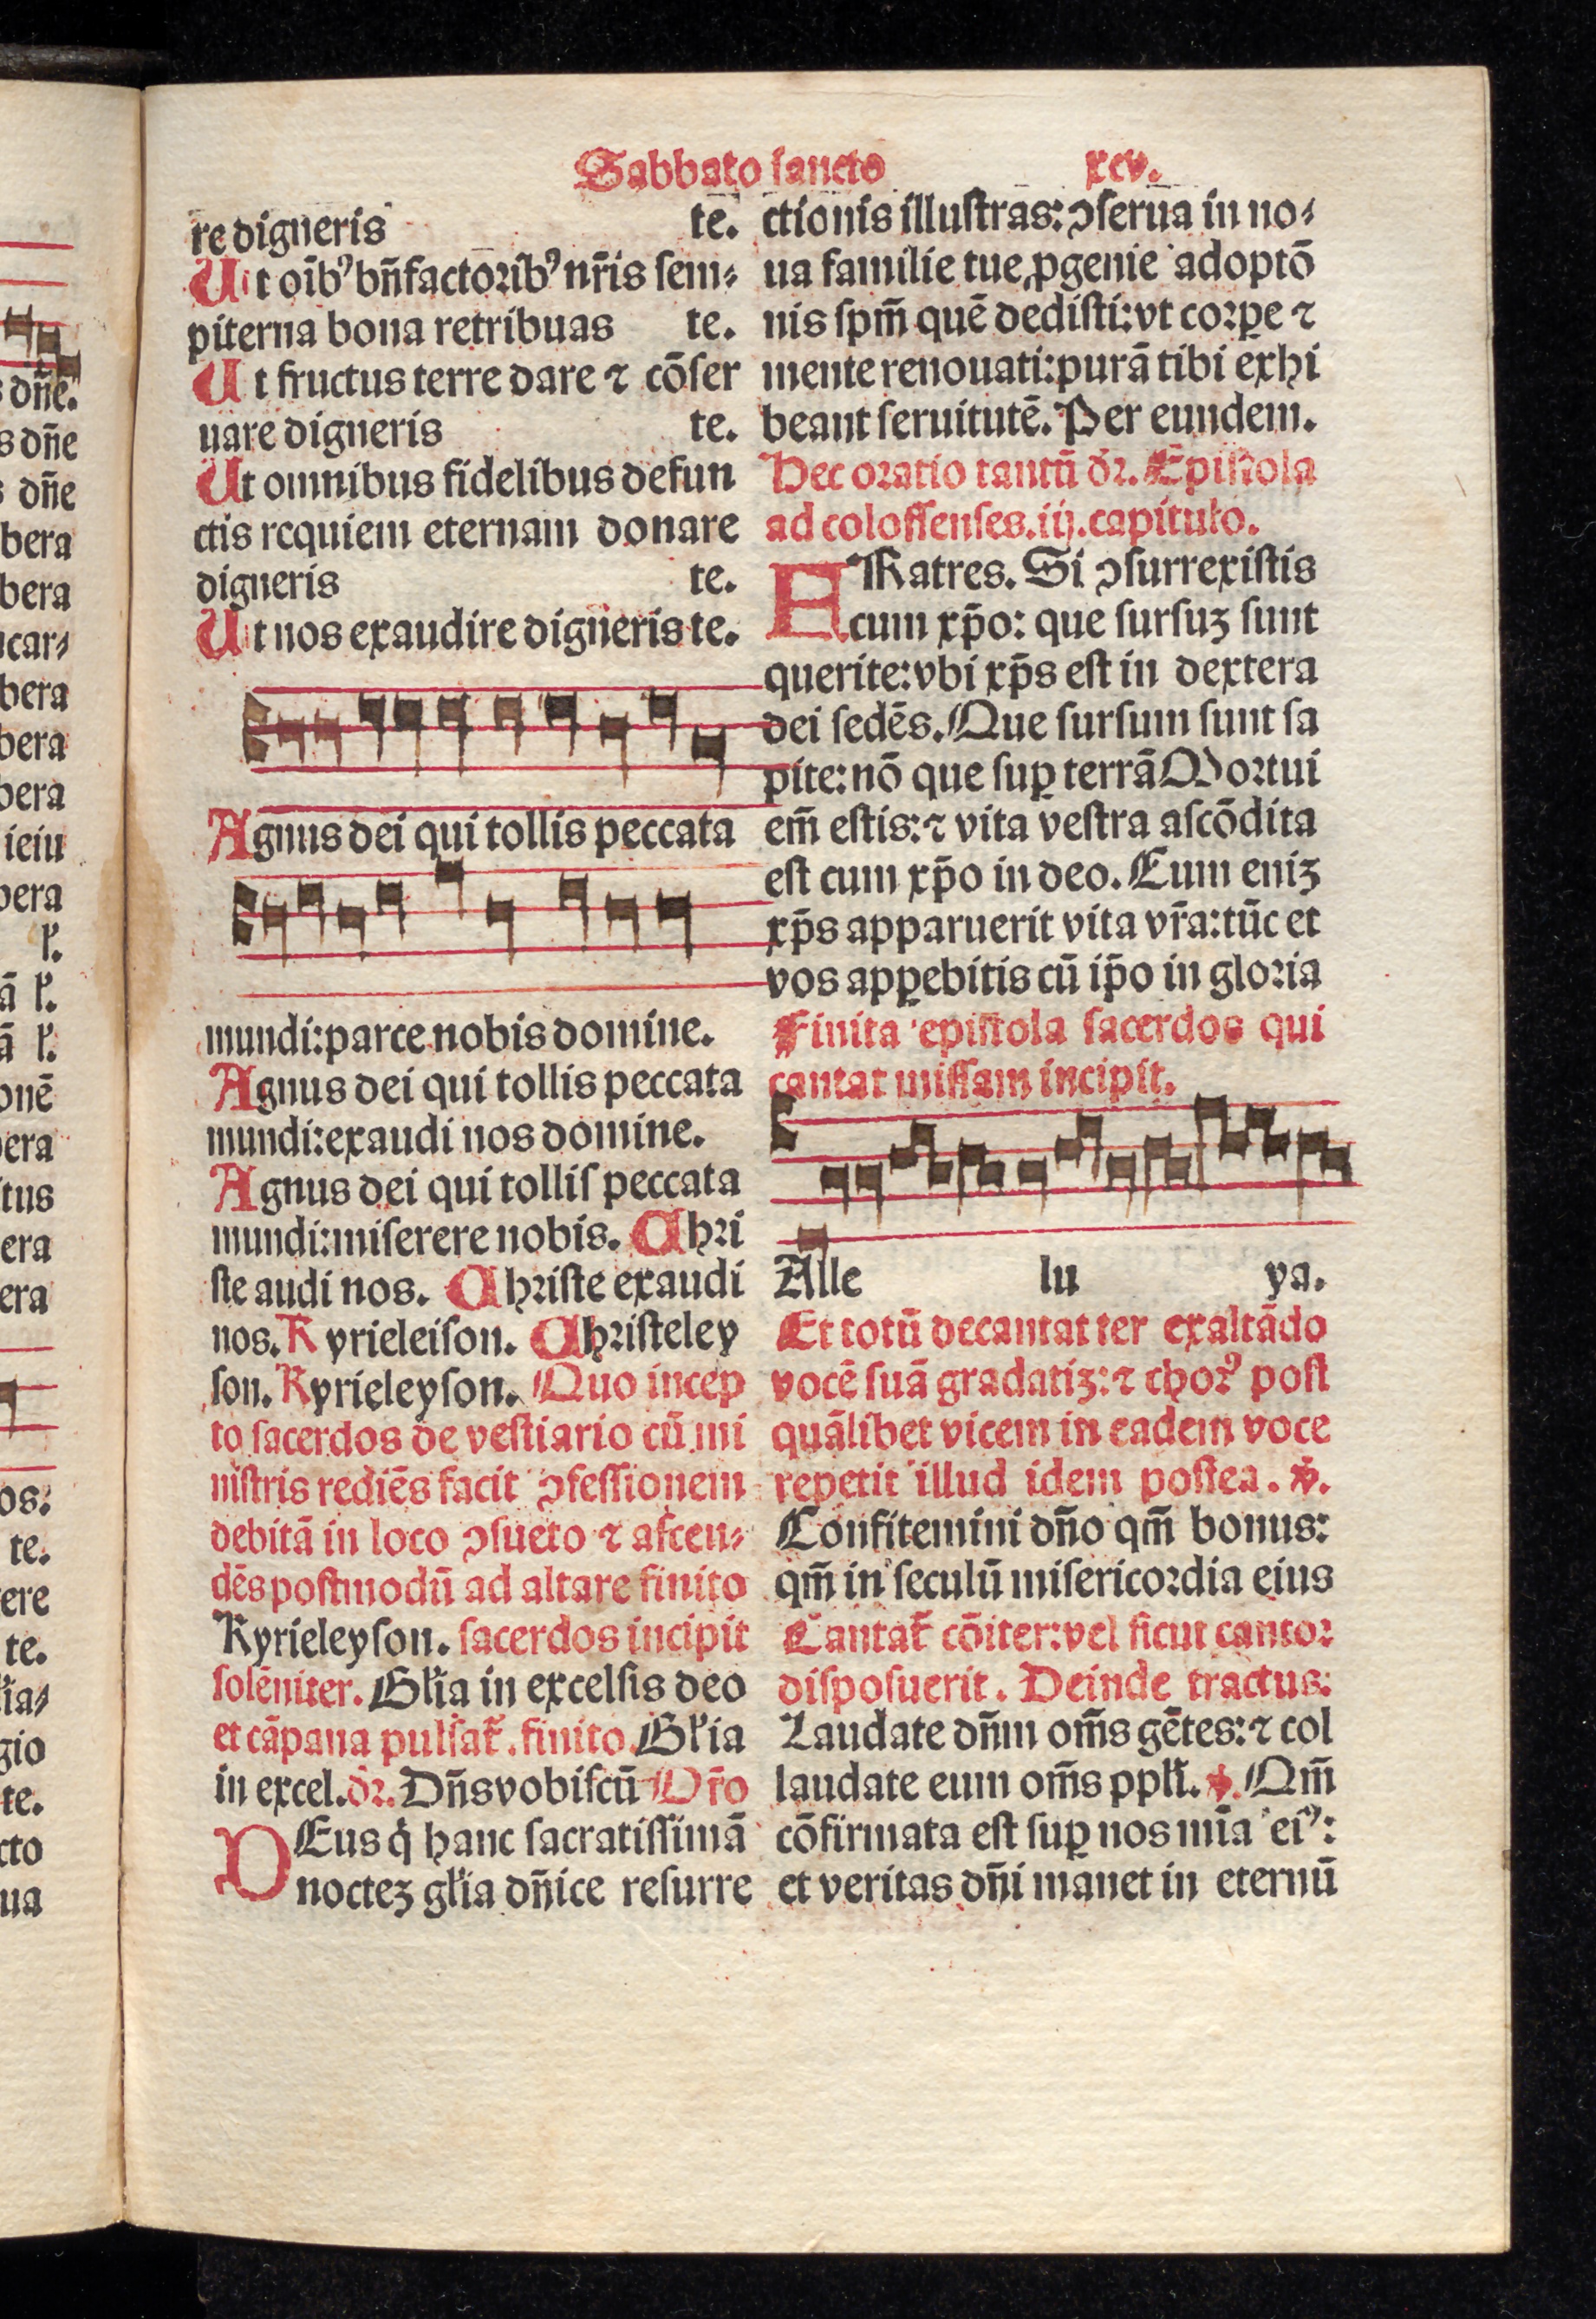 Sabbato sancto xcv.
re digneris te.
Ut oi̅bꝰ bn̅factoribꝰ nr̅is sem⸗
piterna bona retribuas te.
Ut fructus terre dare ⁊ cõser
uare digneris te.
Ut omnibus fidelibus defun
ctis requiem eternam donare
digneris te.
Ut nos exaudire digneris te.
Agnus dei qui tollis peccata
mundi: parce nobis domine.
Agnus dei qui tollis peccata
mundi: exaudi nos domine.
Agnus dei qui tollis peccata
mundi: miserere nobis. Chri
ste audi nos. Christe exaudi
nos. Kyrieleison. Christeley
son. Kyrieleyson. Quo incep
to sacerdos de vestiario cũ mi
nistris rediẽs facit ↄfessionem
debitã in loco ↄsueto ⁊ ascen⸗
dẽs postmodũ ad altare finito
Kyrieleyson. sacerdos incipit
solẽniter. Glꝛ̅ia in excelsis deo
et cãpana pulsat̃. finito. Glꝛ̅ia
in excel. dr̃. Dn̅s vobiscũ Or̃o
DEus q̇ hanc sacratissimã
noctez glꝛ̅ia dn̅ice resurre
ctionis illustras: ↄserua in no⸗
ua familie tue ꝓgenie adoptõ
nis spm̅ quẽ dedisti: vt corꝑe ⁊
mente renouati: purã tibi exhi
beant seruitutẽ. Per eundem.
Hec oratio tantũ dr̃. Epistola
ad colossenses. iij. capitulo.
FRatres. Si ↄsurrexistis
cum xp̅o: que sursuz sunt
querite: vbi xp̅s est in dextera
dei sedẽs. Que sursum sunt sa
pite: nõ que suꝑ terrã Mortui
em̅ estis: ⁊ vita vestra ascõdita
est cum xp̅o in deo. Cum eniz
xp̅s apparuerit vita vr̃a: tũc et
vos apꝑebitis cũ ip̅o in gloria
Finita epistola sacerdos qui
cantat missam incipit.
Alle lu ya.
Et totũ decantat ter exaltãdo
vocẽ suã gradatiz: ⁊ chorꝰ post
quãlibet vicem in eadem voce
repetit illud idem postea. ℣.
Confitemini dn̅o qm̅ bonus:
qm̅ in seculũ misericordia eius
Cantat̃ cõiter: vel sicut cantor
disposuerit. Deinde tractus:
Laudate dn̅m om̅s gẽtes: ⁊ col
laudate eum om̅s ppl̅i. ℣. Qm̅
cõfirmata est suꝑ nos mi̅a eiꝰ:
et veritas dn̅i manet in eternũ